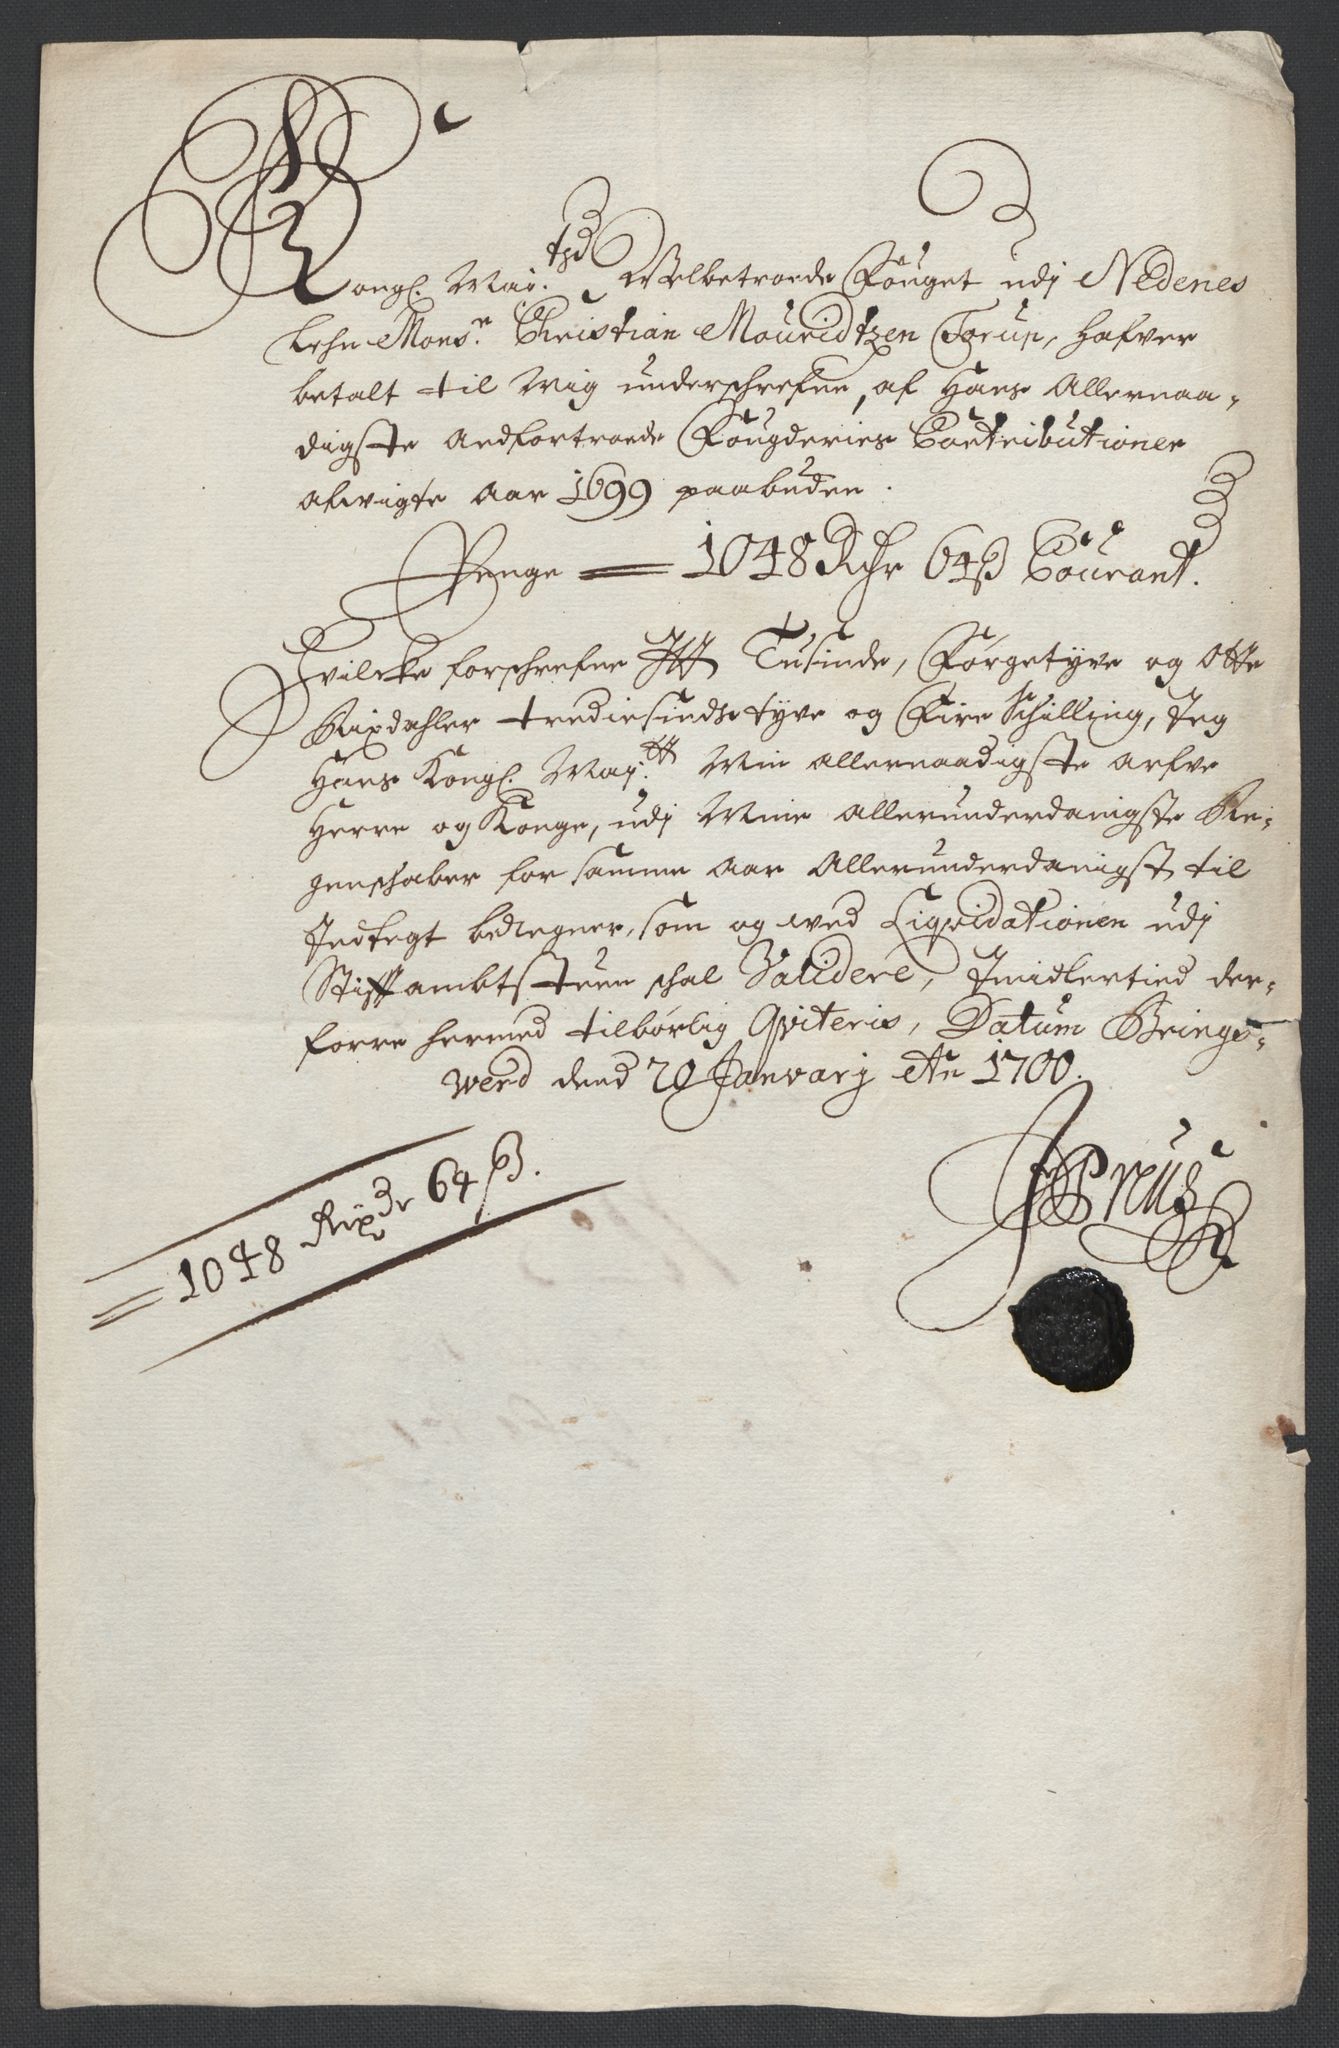 Kongl. Maij.tzs Welbetroede Fouget udj Nedenes
Lehn Mons.r Christian Mouridtzen Torup, hafver
betalt til Mig underschrefne, af Hans Allernaa-
digste Andfortroede Fougderies Contributioner
afvigte Aar 1699 paabuden.
Penge = 1048 Rdr 64 ß Courant.
Hvilcke forschrefne Itt Tusinde, Förgetyve og Otte
Rixdahler trediesindstyve og Fire Schilling, Jeg
Hans Kongl. Maij.tt Min allernaadigste Arfve
Herre og Konge, udj Mine Allerunderdanigste Re-
genschaber for samme Aar Allerunderdanigst til
Indtegt beregner, som og ved Liqvidationen udj
Stiftambtstuen schal Validere, Imidlertid der-
forre hermed tilbörlig Qviteris, Datum Brings-
werd dend 20 Janvarj Ao 1700.
Preus
= 1048 Rixdr 64 ß.